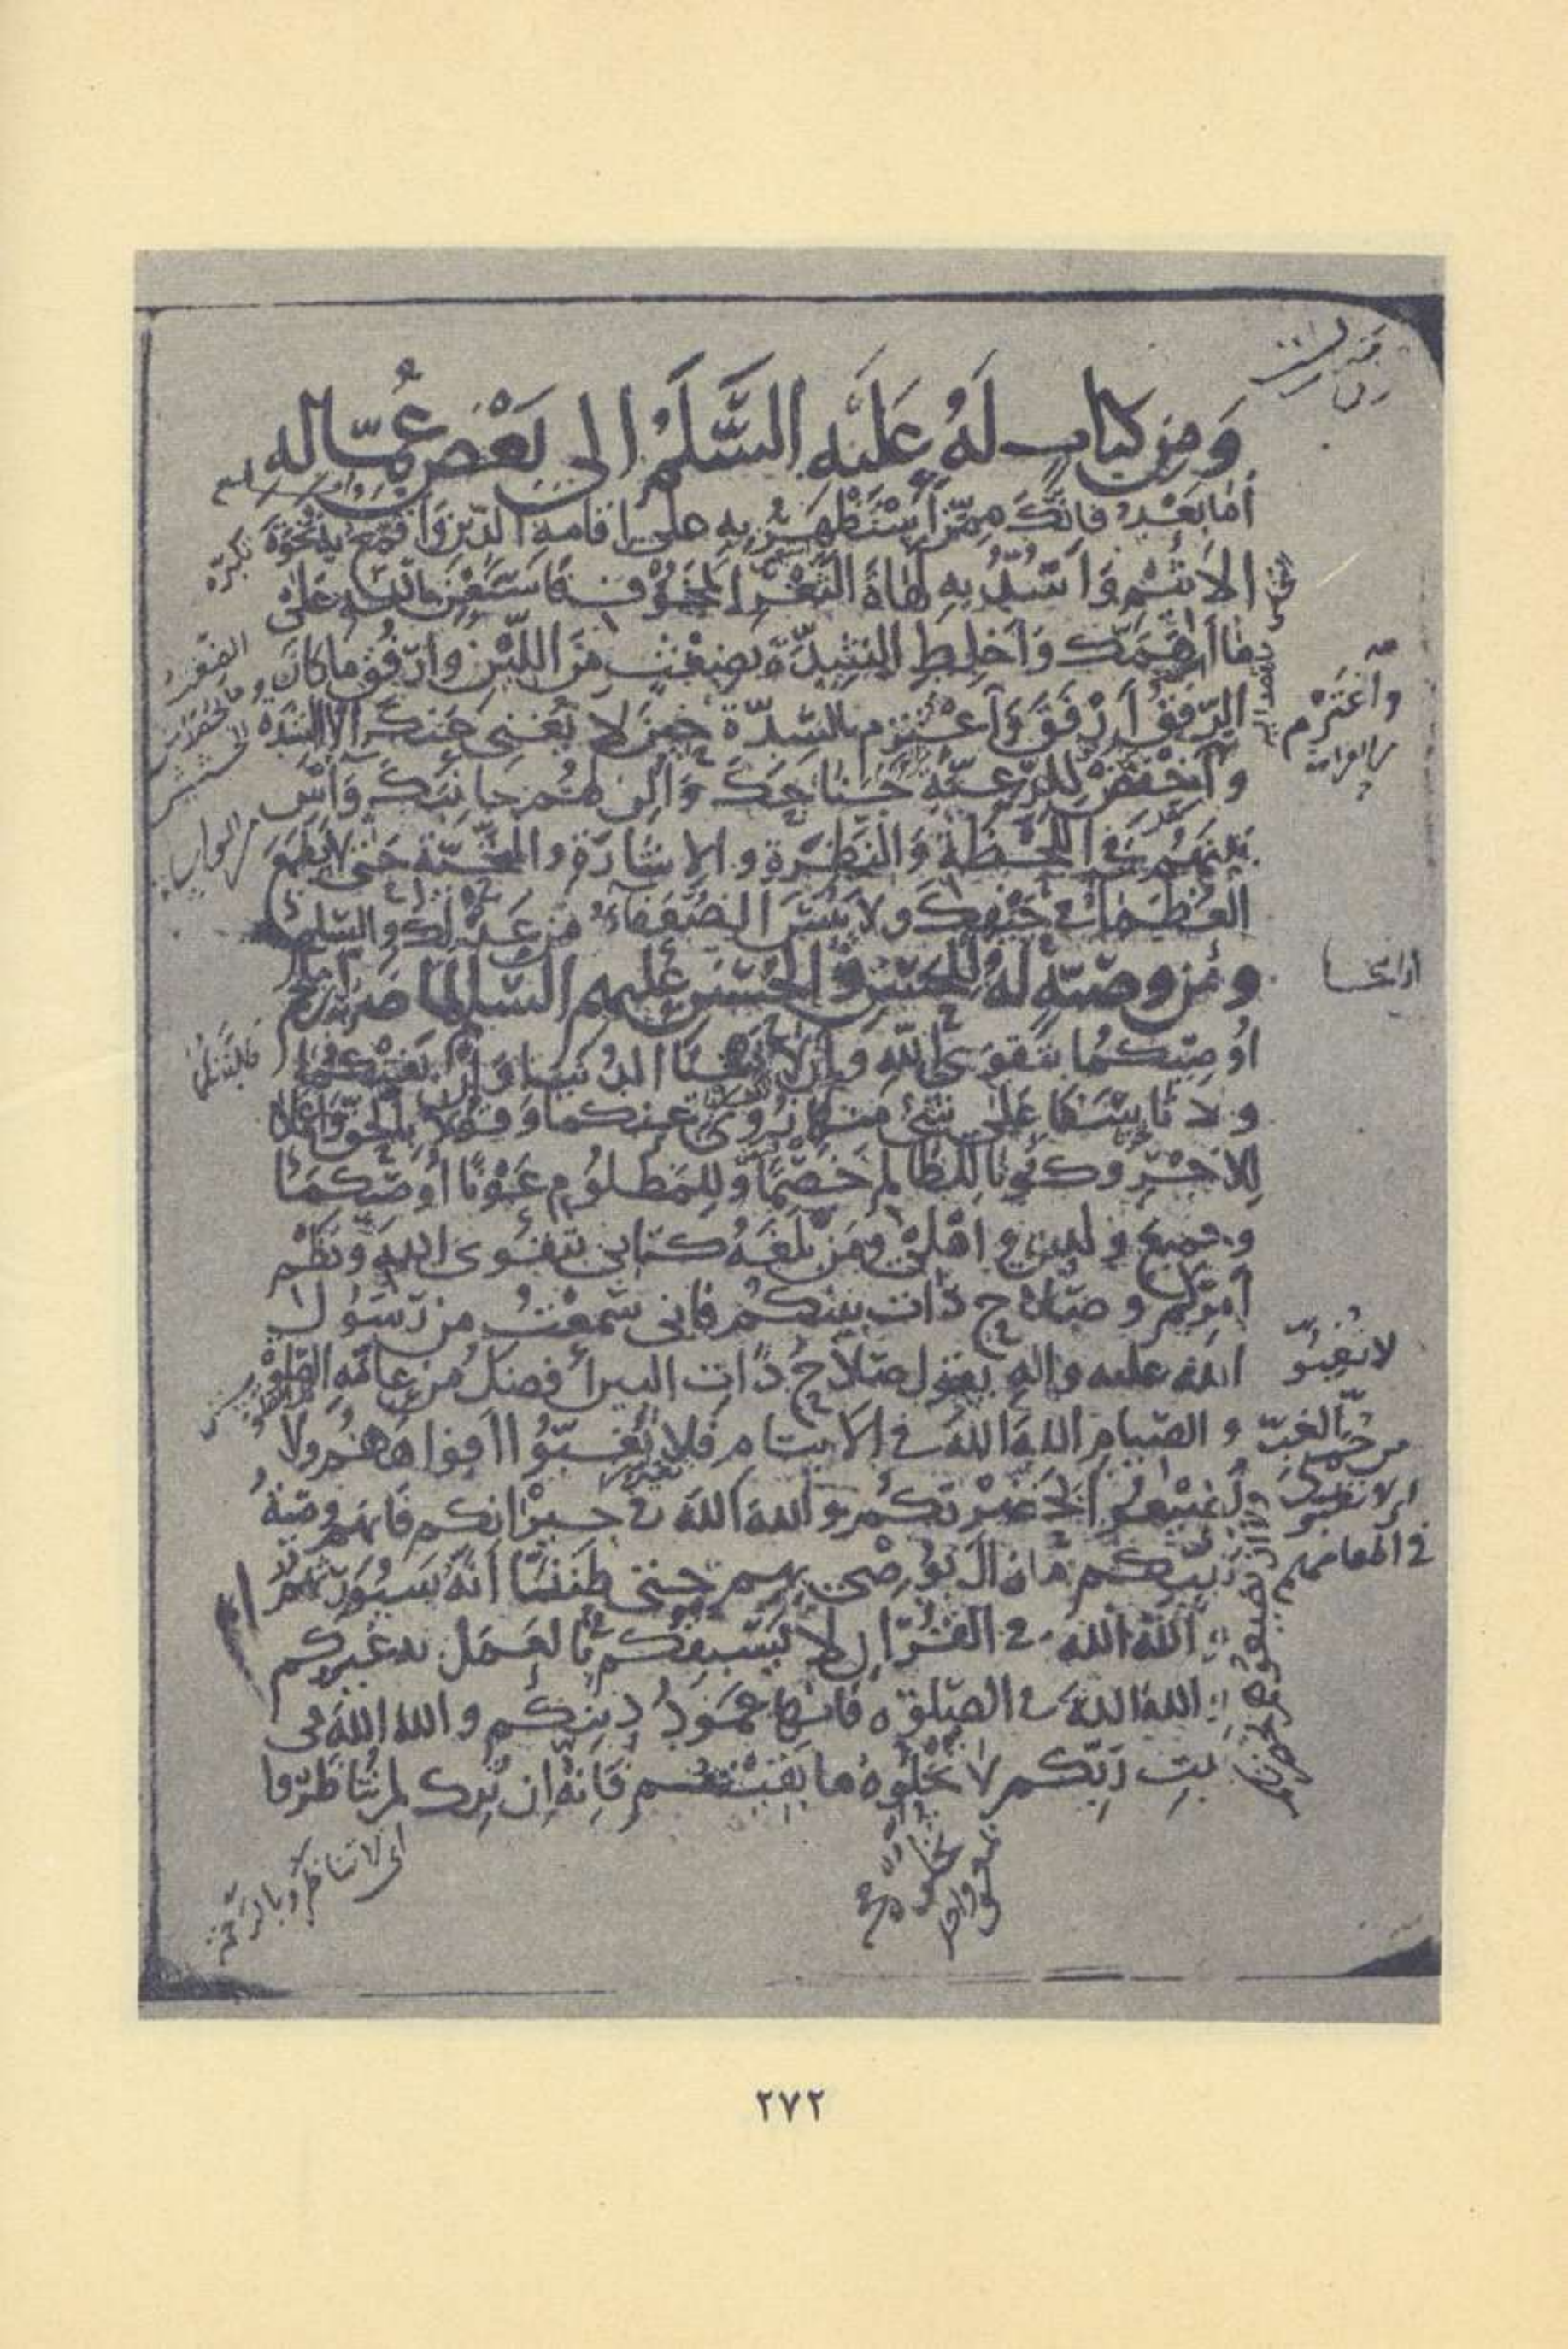 وَمِن كتابٍ لَهُ عَلَيْهِ السَّلَمُ الى بَعْضِ عُمّاله
أما بَعْدُ فانّك ممّن أَسْتَظْهِرُ به على اقامة الدّين وَأَقمَعُ به نَخْوَةَ
الأَثيْم وَأَسُدُّ به لَهَاةَ الثَّغْرِ المَخُوْف فَاسْتَعِن بالله عَلى
ما أَهَمَّك وَاخلِطِ الشِّدَّةَ بضِغْثٍ مِنَ اللّيْن وارْفُق ما كانَ
الرّفقُ أَرْفَقَ وَاعْتَزم بالشّدّة حِينَ لا يُغنى عَنكَ الا الشّدّة
واخْفِضْ للرّعيَّة جَناحَكَ وَأَلِن لهُم جانِبَكَ وَآسِ
بَيْنَهُم فى اللّحْظَة وَالنَّظرَة والاشارَة والتّحيّة حَتى لا يَطْمَعَ
العُظمَاءُ فى حَيْفِكَ ولا يَيْئسَ الضُّعَفَاءُ مِن عَدْلِكَ والسّلم
ومن وصيّةٍ لهُ للحَسَنِ والحُسَيْنِ عليهم السّلم لمّا ضربه ابن ملجم
أُوصِيكُما بتَقوَى الله وأن لا تَبْغِيَا الدُنيَا وَإنْ بَغَتْكُما
ولا تأسَفَا عَلى شَىْءٍ مِنهَا زُوِىَ عنكما وقُولا بالحقّ وَاعْمَلا
لِلاَجْرِ وكُونا للظالم خَصْمًا وللمَظلُوم عَوْنًا أُوصيكمَا
وجميعَ ولدى وأهْلى ومَن بَلَغَهُ كتابى بتقوى اللهِ ونَظْم
أَمْرِكُم وصَلاح ذات بينكُم فانى سَمعْتُ من رسُول
الله عليه واله يقول صَلاحُ ذَاتِ البين أفضلُ من عامّةِ الصّلوة
والصّيام اللهَ اللهَ فى الايتام فلا تُغِبّوُا أفواهَهُم ولا
يَضِيعُوا بحَضْرتكُم واللهَ اللهَ فى جيرانكم فَانّهم وصيّةُ
نَبيّكم مَا زالَ يُوصى بهم حتى ظننّا أَنّهُ سَيُوَرّثُهُم
اللهَ اللهَ فى القُرْآنِ لا يَسْبِقُكُم بالعَمَل به غيركم
اللهَ اللهَ فى الصّلوة فانّها عَمُودُ دِينِكُم والله اللهَ فى
بيتِ رَبّكم لا تُخْلُوهُ ما بَقِيْتُم فَانّهُ ان تُرِك لم تُناظَرُوا
واعْتَزم
لا تُغِبُّو
من
فى اطعامهم
اى لا تناظَرُو بالرّحمة
٢٧٢